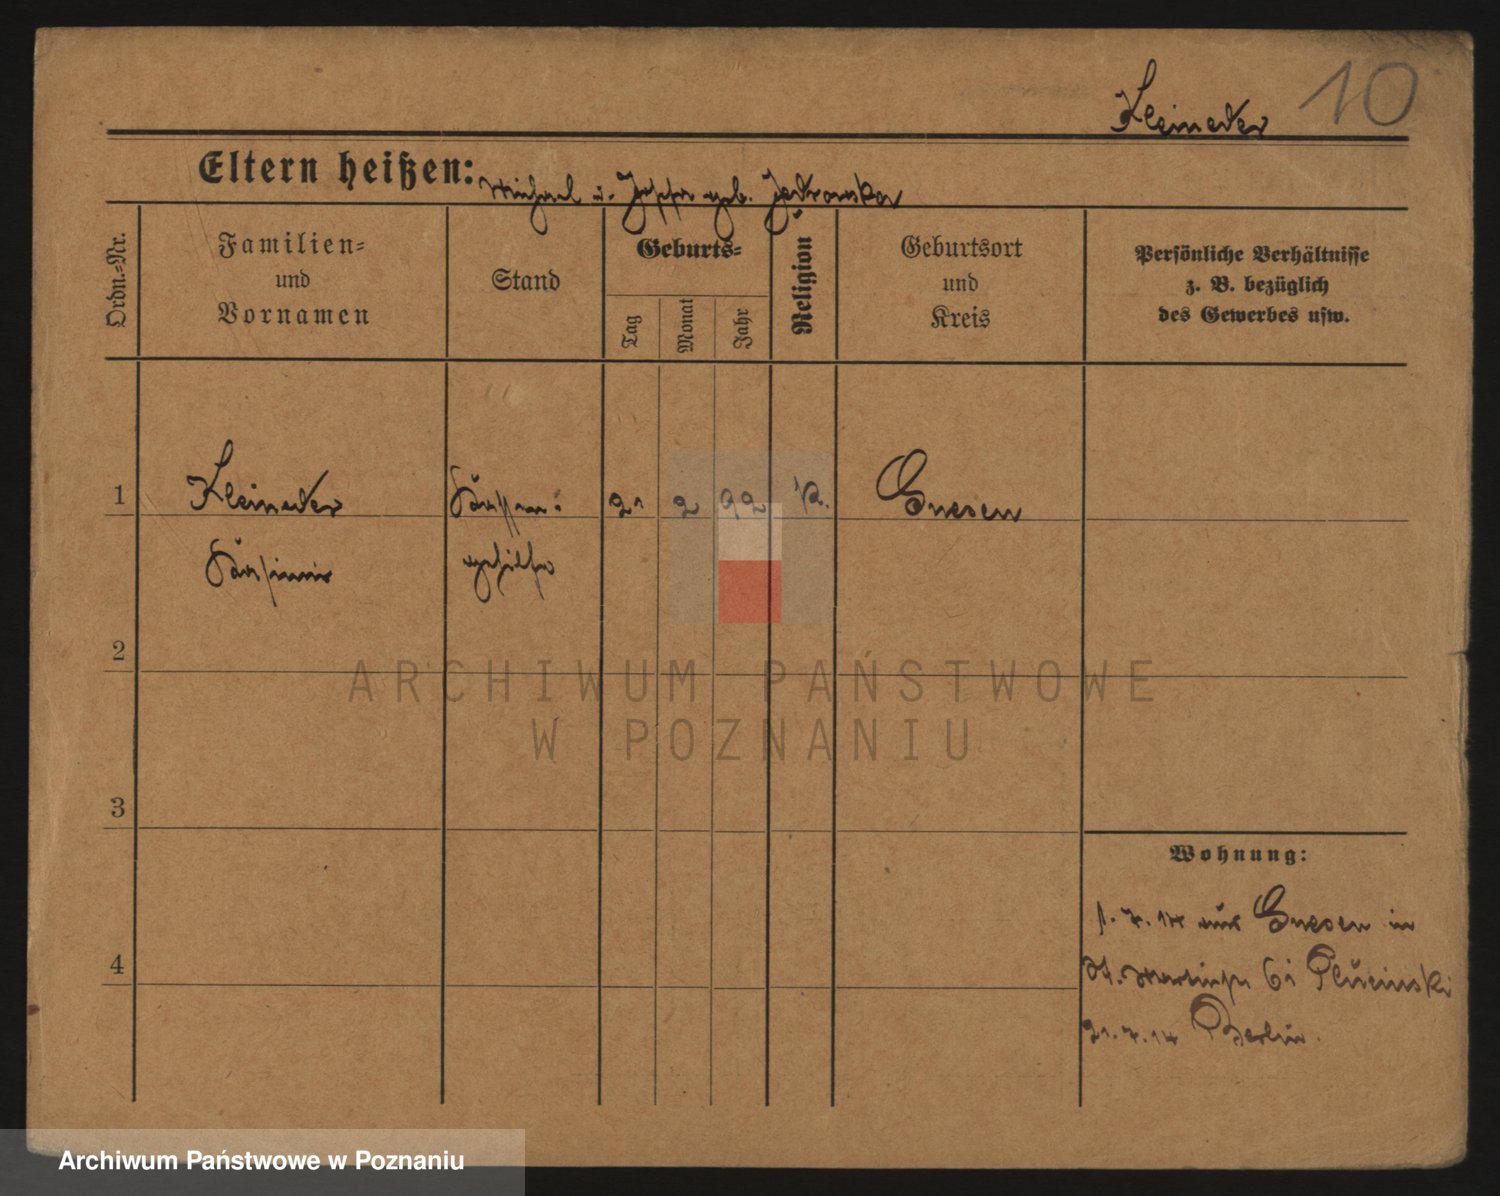 10
Kleineder
Eltern heißen: Michael u. Josefa geb. Jedrowska
Ordn.=Nr.
Familien=
und
Vornamen
Stand
Geburts=
Tag
Monat
Jahr
Religion
Geburtsort
und
Kreis
Persönliche Verhältnisse
z. B. bezüglich
des Gewerbes usw.
1 Kleineder 21 2 92 K. Gnesen
Kasimir gehilfe
2
3
4
Wohnung:
1.7.14 aus Gnesen in
St. Martinstr 6 i Plucinski
21.7.14 Berlin.
ARCHIWUM PAŃSTWOWE
W POZNANIU
Archiwum Państwowe w Poznaniu